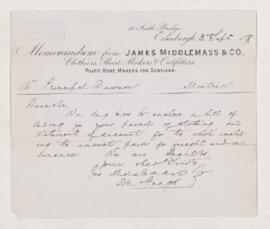 18 South Bridge,
Edinburgh 3d Sept 188
Memorandum from JAMES MIDDLEMASS & CO.
Clothiers, Shirt Makers & Outfitters.
PULPIT ROBE MAKERS FOR SCOTLAND.
To Principal Dawson Montreal
Dear Sir
We beg here to enclose a bill of
lading in your parcel of clothing and
statement of account for the whole includ
ing the amount paid for freight and in
surance. We are
Your
Middlemass